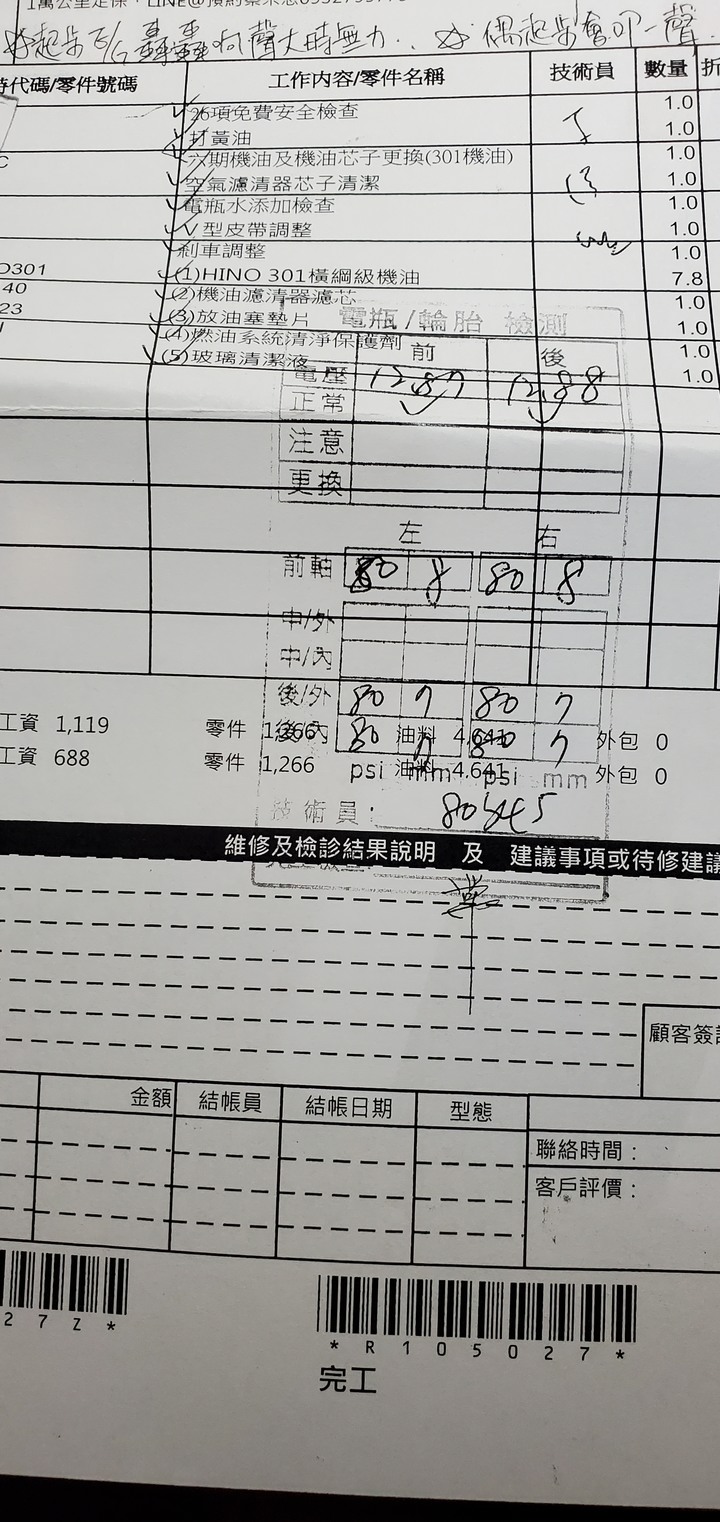 1萬公里定保
起步
轟轟向聲大時無力.. 偶起步會叩一聲.
時代碼/零件號碼 工作內容/零件名稱 技術員 數量 折
26項免費安全檢查 1.0
打黃油 1.0
C 六期機油及機油芯子更換(301機油) 1.0
空氣濾清器芯子清潔 1.0
電瓶水添加檢查 1.0
V型皮帶調整 1.0
剎車調整 1.0
O301 (1)HINO 301橫綱級機油 7.8
40 (2)機油濾清器濾芯 1.0
23 (3)放油塞墊片 1.0
(4)燃油系統清淨保護劑 1.0
(5)玻璃清潔液 1.0
電瓶/輪胎 檢測
前 後
電壓 12.87 12.88
正常
注意
更換
左 右
前軸 80 8 80 8
中/外
中/內
後/外 80 7 80 7
後/內 80 7 80 7
psi mm psi mm
工資 1,119 零件 1,266 油料 4,641 外包 0
工資 688 零件 1,266 油料 4,641 外包 0
技術員:
維修及檢診結果說明 及 建議事項或待修建議
顧客簽認
金額 結帳員 結帳日期 型態
聯絡時間：
客戶評價：
27Z*
*R105027*
完工